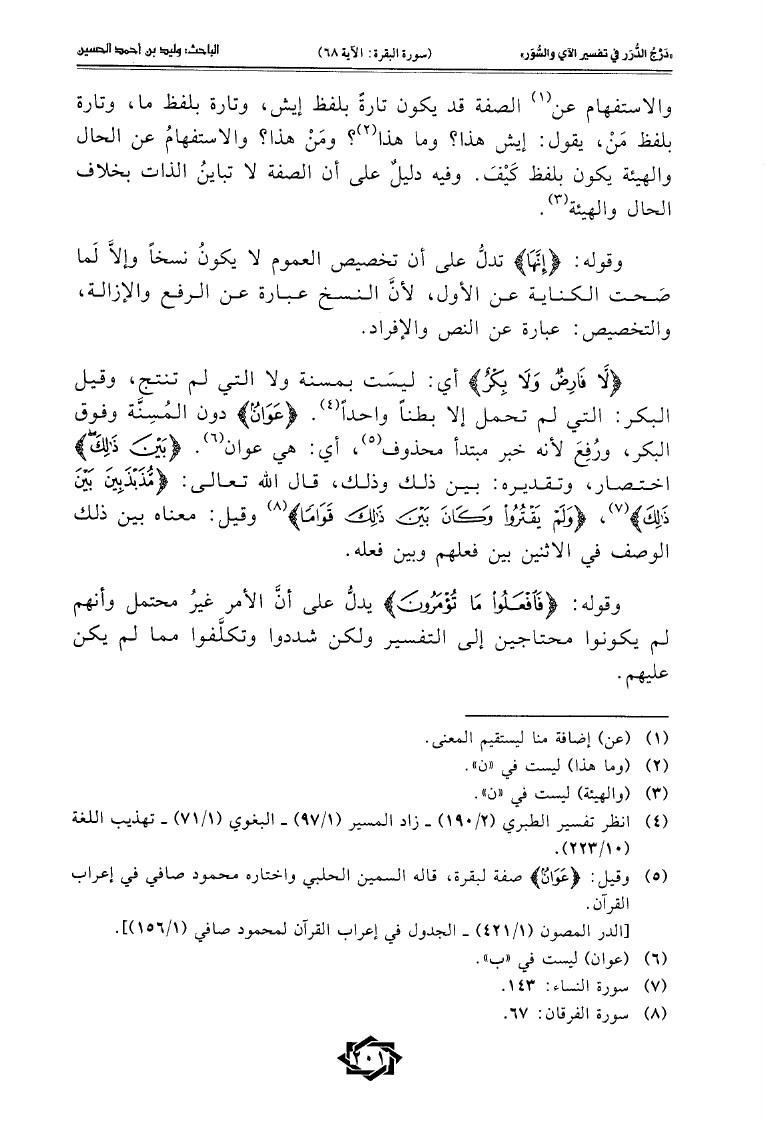 «دَرْجُ الدُّرَر في تفسير الآي والسُّوَر» (سورة البقرة: الآية ٦٨) الباحث: وليد بن أحمد الحسين
والاستفهام عن(١) الصفة قد يكون تارةً بلفظ إيش، وتارة بلفظ ما، وتارة
بلفظ مَنْ، يقول: إيش هذا؟ وما هذا(٢)؟ ومَنْ هذا؟ والاستفهامُ عن الحال
والهيئة يكون بلفظ كَيْفَ. وفيه دليلٌ على أن الصفة لا تباينُ الذات بخلاف
الحال والهيئة(٣).
وقوله: ﴿إِنَّهَا﴾ تدلُّ على أن تخصيص العموم لا يكونُ نسخاً وإلاَّ لَما
صَحت الكناية عن الأول، لأنَّ النسخ عبارة عن الرفع والإزالة،
والتخصيص: عبارة عن النص والإفراد.
﴿لَّا فَارِضٌ وَلَا بِكْرٌ﴾ أي: ليسَت بمسنة ولا التي لم تنتج، وقيل
البكر: التي لم تحمل إلا بطناً واحداً(٤). ﴿عَوَانٌ﴾ دون المُسِنَّة وفوق
البكر، ورُفِعَ لأنه خبر مبتدأ محذوف(٥)، أي: هي عوان(٦). ﴿بَيْنَ ذَٰلِكَ﴾
اختصار، وتقديره: بين ذلك وذلك، قال الله تعالى: ﴿مُّذَبْذَبِينَ بَيْنَ
ذَٰلِكَ﴾(٧)، ﴿وَلَمْ يَقْتُرُوا۟ وَكَانَ بَيْنَ ذَٰلِكَ قَوَامًا﴾(٨) وقيل: معناه بين ذلك
الوصف في الاثنين بين فعلهم وبين فعله.
وقوله: ﴿فَافْعَلُوا۟ مَا تُؤْمَرُونَ﴾ يدلُّ على أنَّ الأمر غيرُ محتمل وأنهم
لم يكونوا محتاجين إلى التفسير ولكن شددوا وتكلَّفوا مما لم يكن
عليهم.
(١) (عن) إضافة منا ليستقيم المعنى.
(٢) (وما هذا) ليست في «ن».
(٣) (والهيئة) ليست في «ن».
(٤) انظر تفسير الطبري (١٩٠/٢) ـ زاد المسير (٩٧/١) ـ البغوي (٧١/١) ـ تهذيب اللغة
(٢٢٣/١٠).
(٥) وقيل: ﴿عَوَانٌ﴾ صفة لبقرة، قاله السمين الحلبي واختاره محمود صافي في إعراب
القرآن.
[الدر المصون (٤٢١/١) ـ الجدول في إعراب القرآن لمحمود صافي (١٥٦/١)].
(٦) (عوان) ليست في «ب».
(٧) سورة النساء: ١٤٣.
(٨) سورة الفرقان: ٦٧.
٢٠١